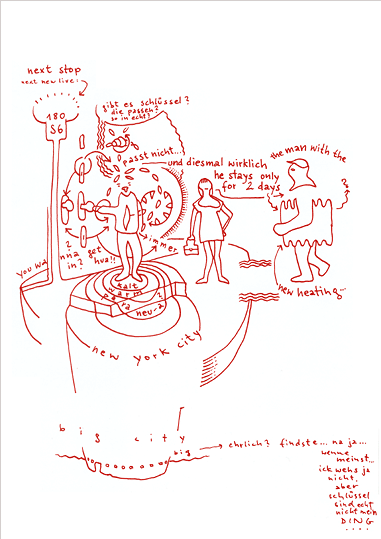 next stop
next new live:
180
S6
gibt es schlüssel?
die passen?
so in echt?
passt nicht...
und diesmal wirklich
he stays only
for 2 days
the man with the
new heating...
immer
you wa
nna get
in?
hva!!
kalt
warm
neura
new york city
big city
big
ehrlich? findste... na ja...
wenne
meinst...
ick wehs ja
nicht,
aber
schlüssel
sind echt
nicht mein
DING
....